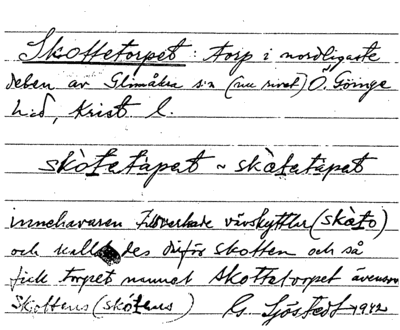 Skottetorpet: torp i nordligaste
delen av Glimåkra sn (nu rivet) Ö. Göinge
hd, Krist. l.
skòtatàpat ~ skòtatàpat
innehavaren tillverkade vävskyttlar (skòto)
och kallades därför skotten och så
fick torpet namnet skottetorpet ävensom
Skottens (skòtens) G. Sjöstedt 1942